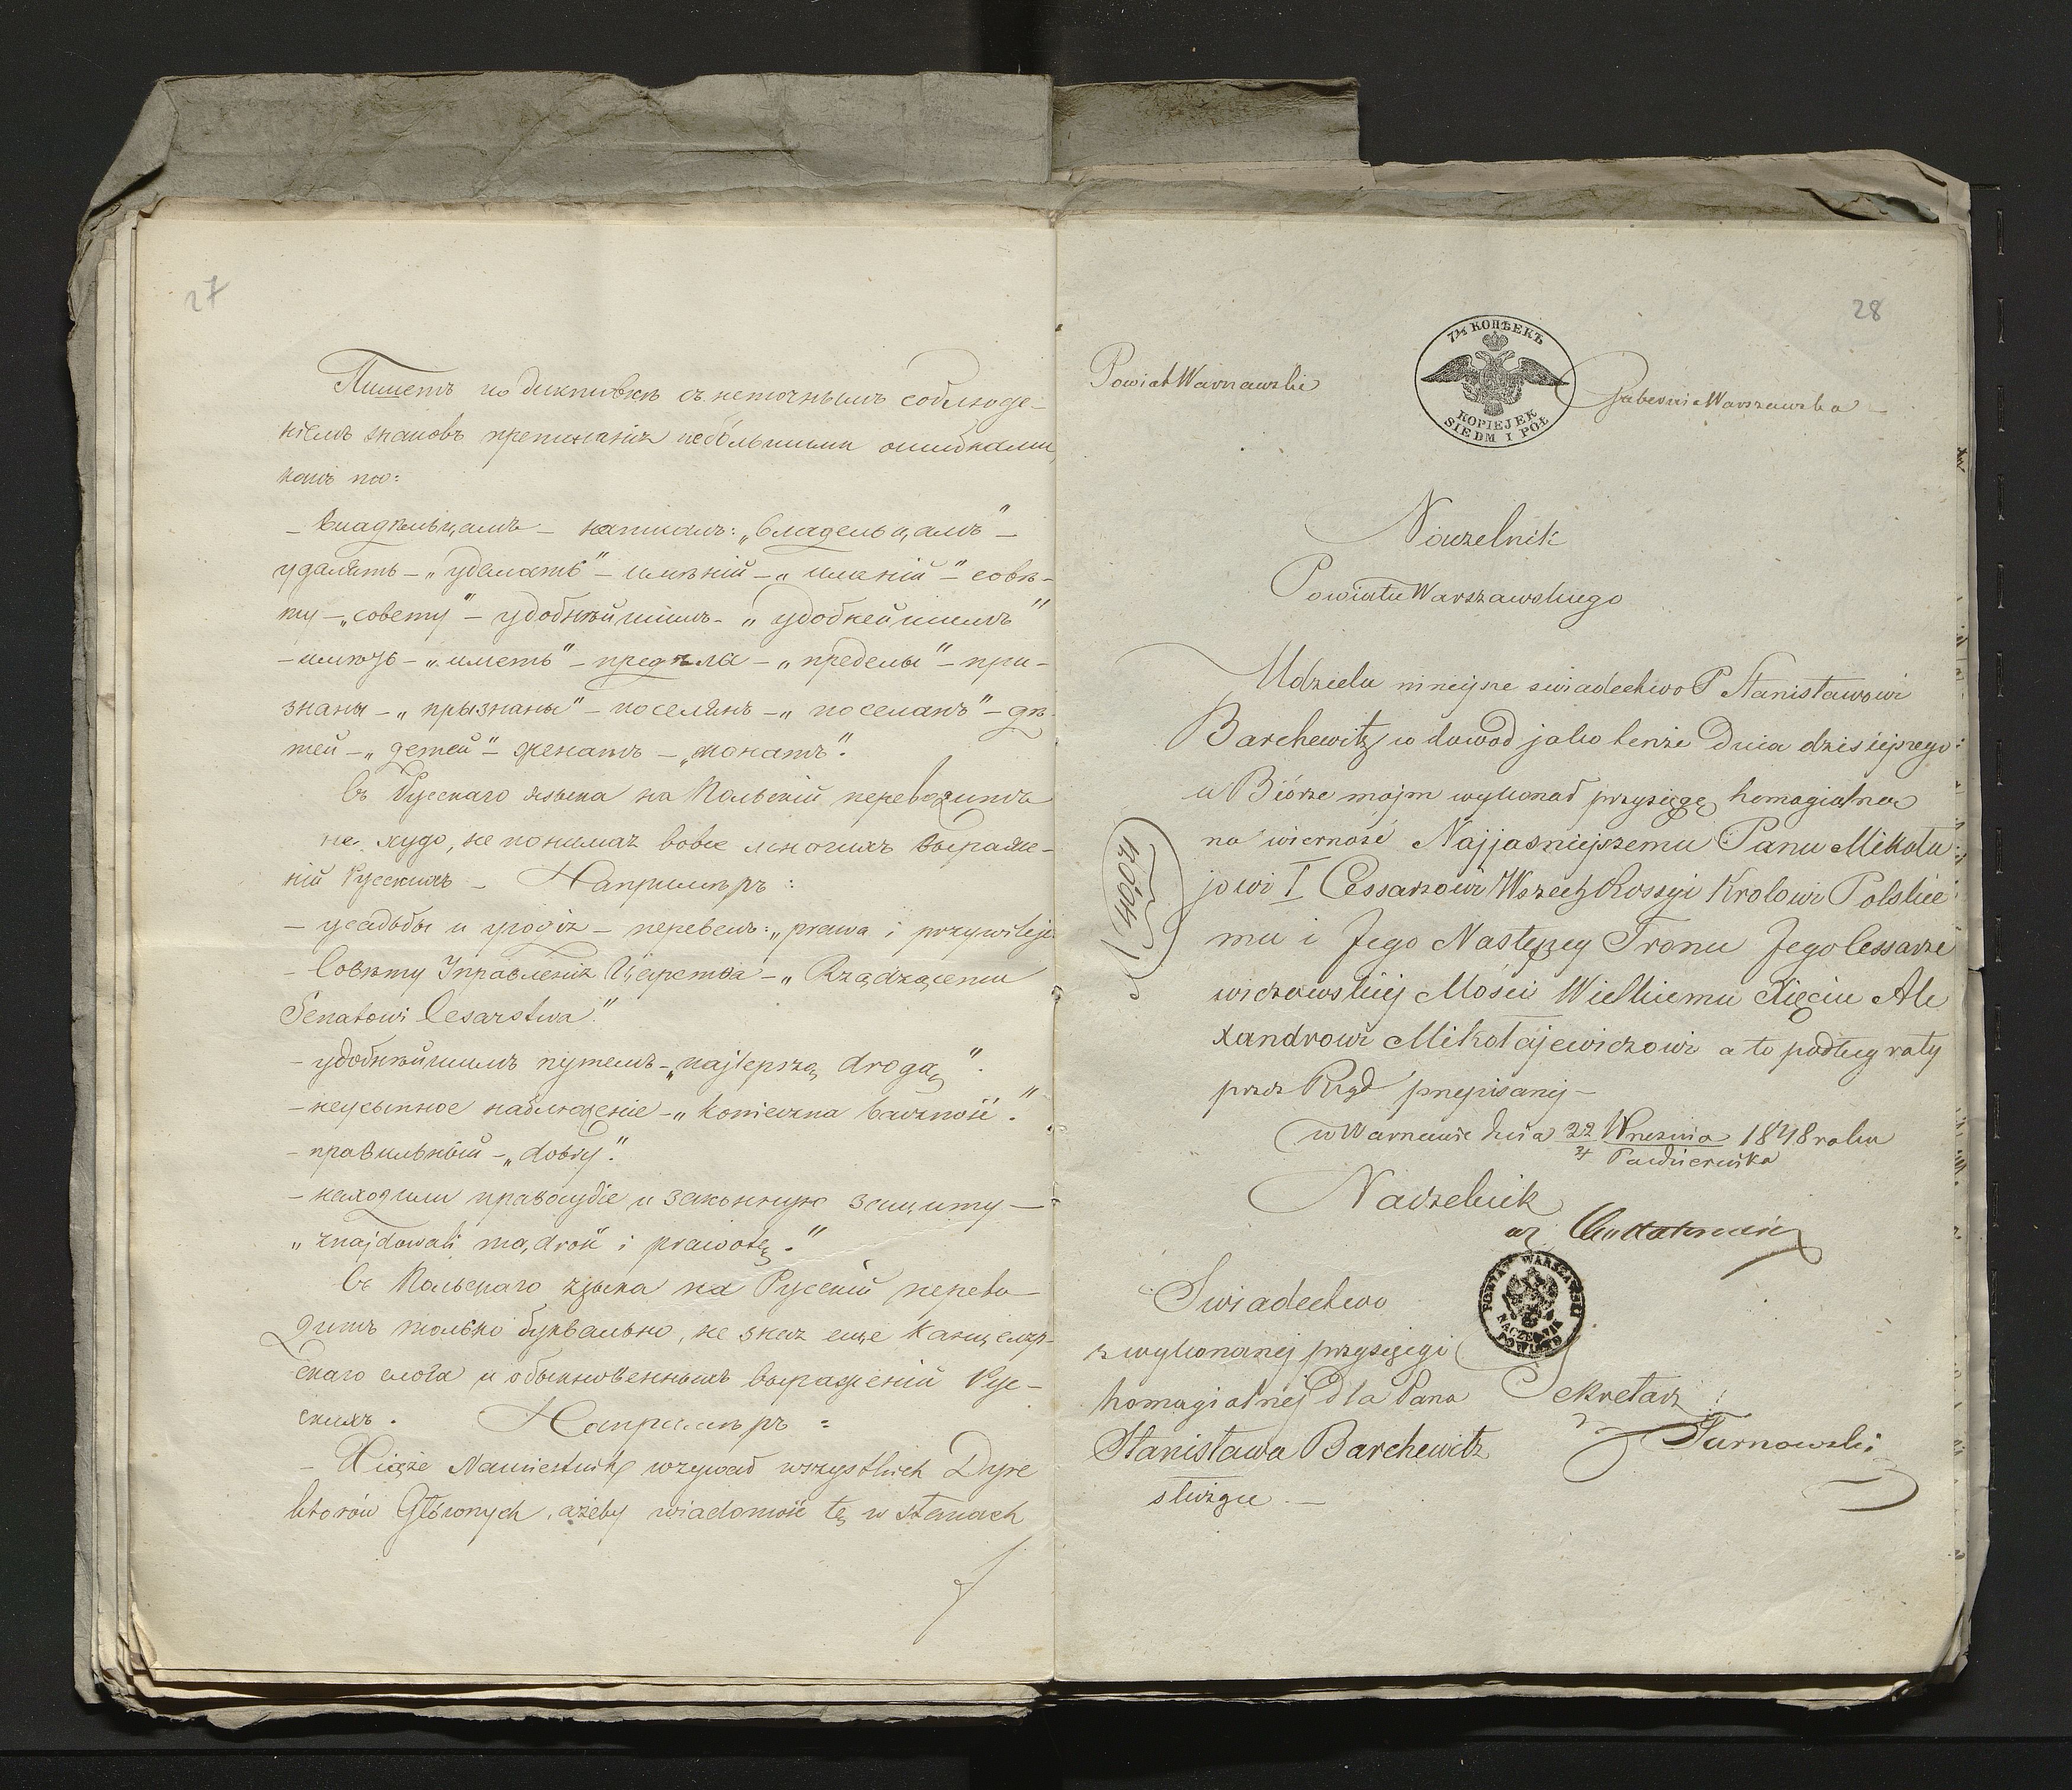 27
Пишетъ по диктовкѣ съ неточнымъ соблюде-
ніемъ знаковъ препинанія небольшими ошибками,
какъ то:
- владѣльцамъ - написалъ: „владельцамъ" -
удалять - „удалать" - имѣній - „имений" - совѣ-
ту - „совету" - удобнѣйшимъ - „удобнейшимъ"
- имѣть - „иметь" - предѣла - „пределы" - при-
знаны - „прызнаны" - поселянъ - „поселанъ" - дѣ-
тей - „детей" - женатъ - „жонатъ".
Съ Русскаго языка на Польскій переводитъ
не худо, не понимая вовсе многихъ выраже-
ній Русскихъ - Напримѣръ:
- усадьбы и угодія - перевелъ: „prawa i przywileje
- Совѣту Управленія Царства - „Rządzącemu
Senatowi Cesarstwa."
- удобнѣйшимъ путемъ - „najlepszą drogą".
- неусыпное наблюденіе - „konieczna baczność."
- правильный - „dobry".
- находили правосудіе и законную защиту -
„znajdowali mądrość i prawotę."
Съ Польскаго языка на Русскій перево-
дитъ только буквально, не зная еще Канцеляр-
скаго слога и обыкновенныхъ выраженій Рус-
скихъ. Напримѣръ:
- Xiąże Namiestnik wzywał wszystkich Dyre
ktorów Głównych, ażeby wiadomość tę w
28
7½ КОПѢЕКЪ
KOPIEJEK
SIEDM I PÓŁ
Powiat Warszawski
Gubernia Warszawska
Naczelnik
Powiatu Warszawskiego
Udziela niniejsze swiadectwo P Stanisławowi
Barchewitz w dowod jako tenże Dnia dzisiejszego
w Biórze mojm wykonał przysięgę homagialną
na wierność Najjasniejszemu Panu Mikoła
jowi I Cessarzowi Wszech Rossyi Krolowi Polskie
mu i Jego Następcy Tronu Jego Cessarze
wiczowskiej Mości Wielkiemu Xięciu Ale
xandrowi Mikołajewiczowi a to podług roty
przez Rząd przepisanej -
w Warszawie dnia 22 Wrzesnia 1848 roku
4 Pazdziernika
Naczelnik
POWIAT WARSZAWSKI
NACZELNIK
POWIATU
Swiadectwo
z wykonanej przysięgi
homagialnej dla Pana
Stanisława Barchewitz
służące -
Sekretarz
Turnowski